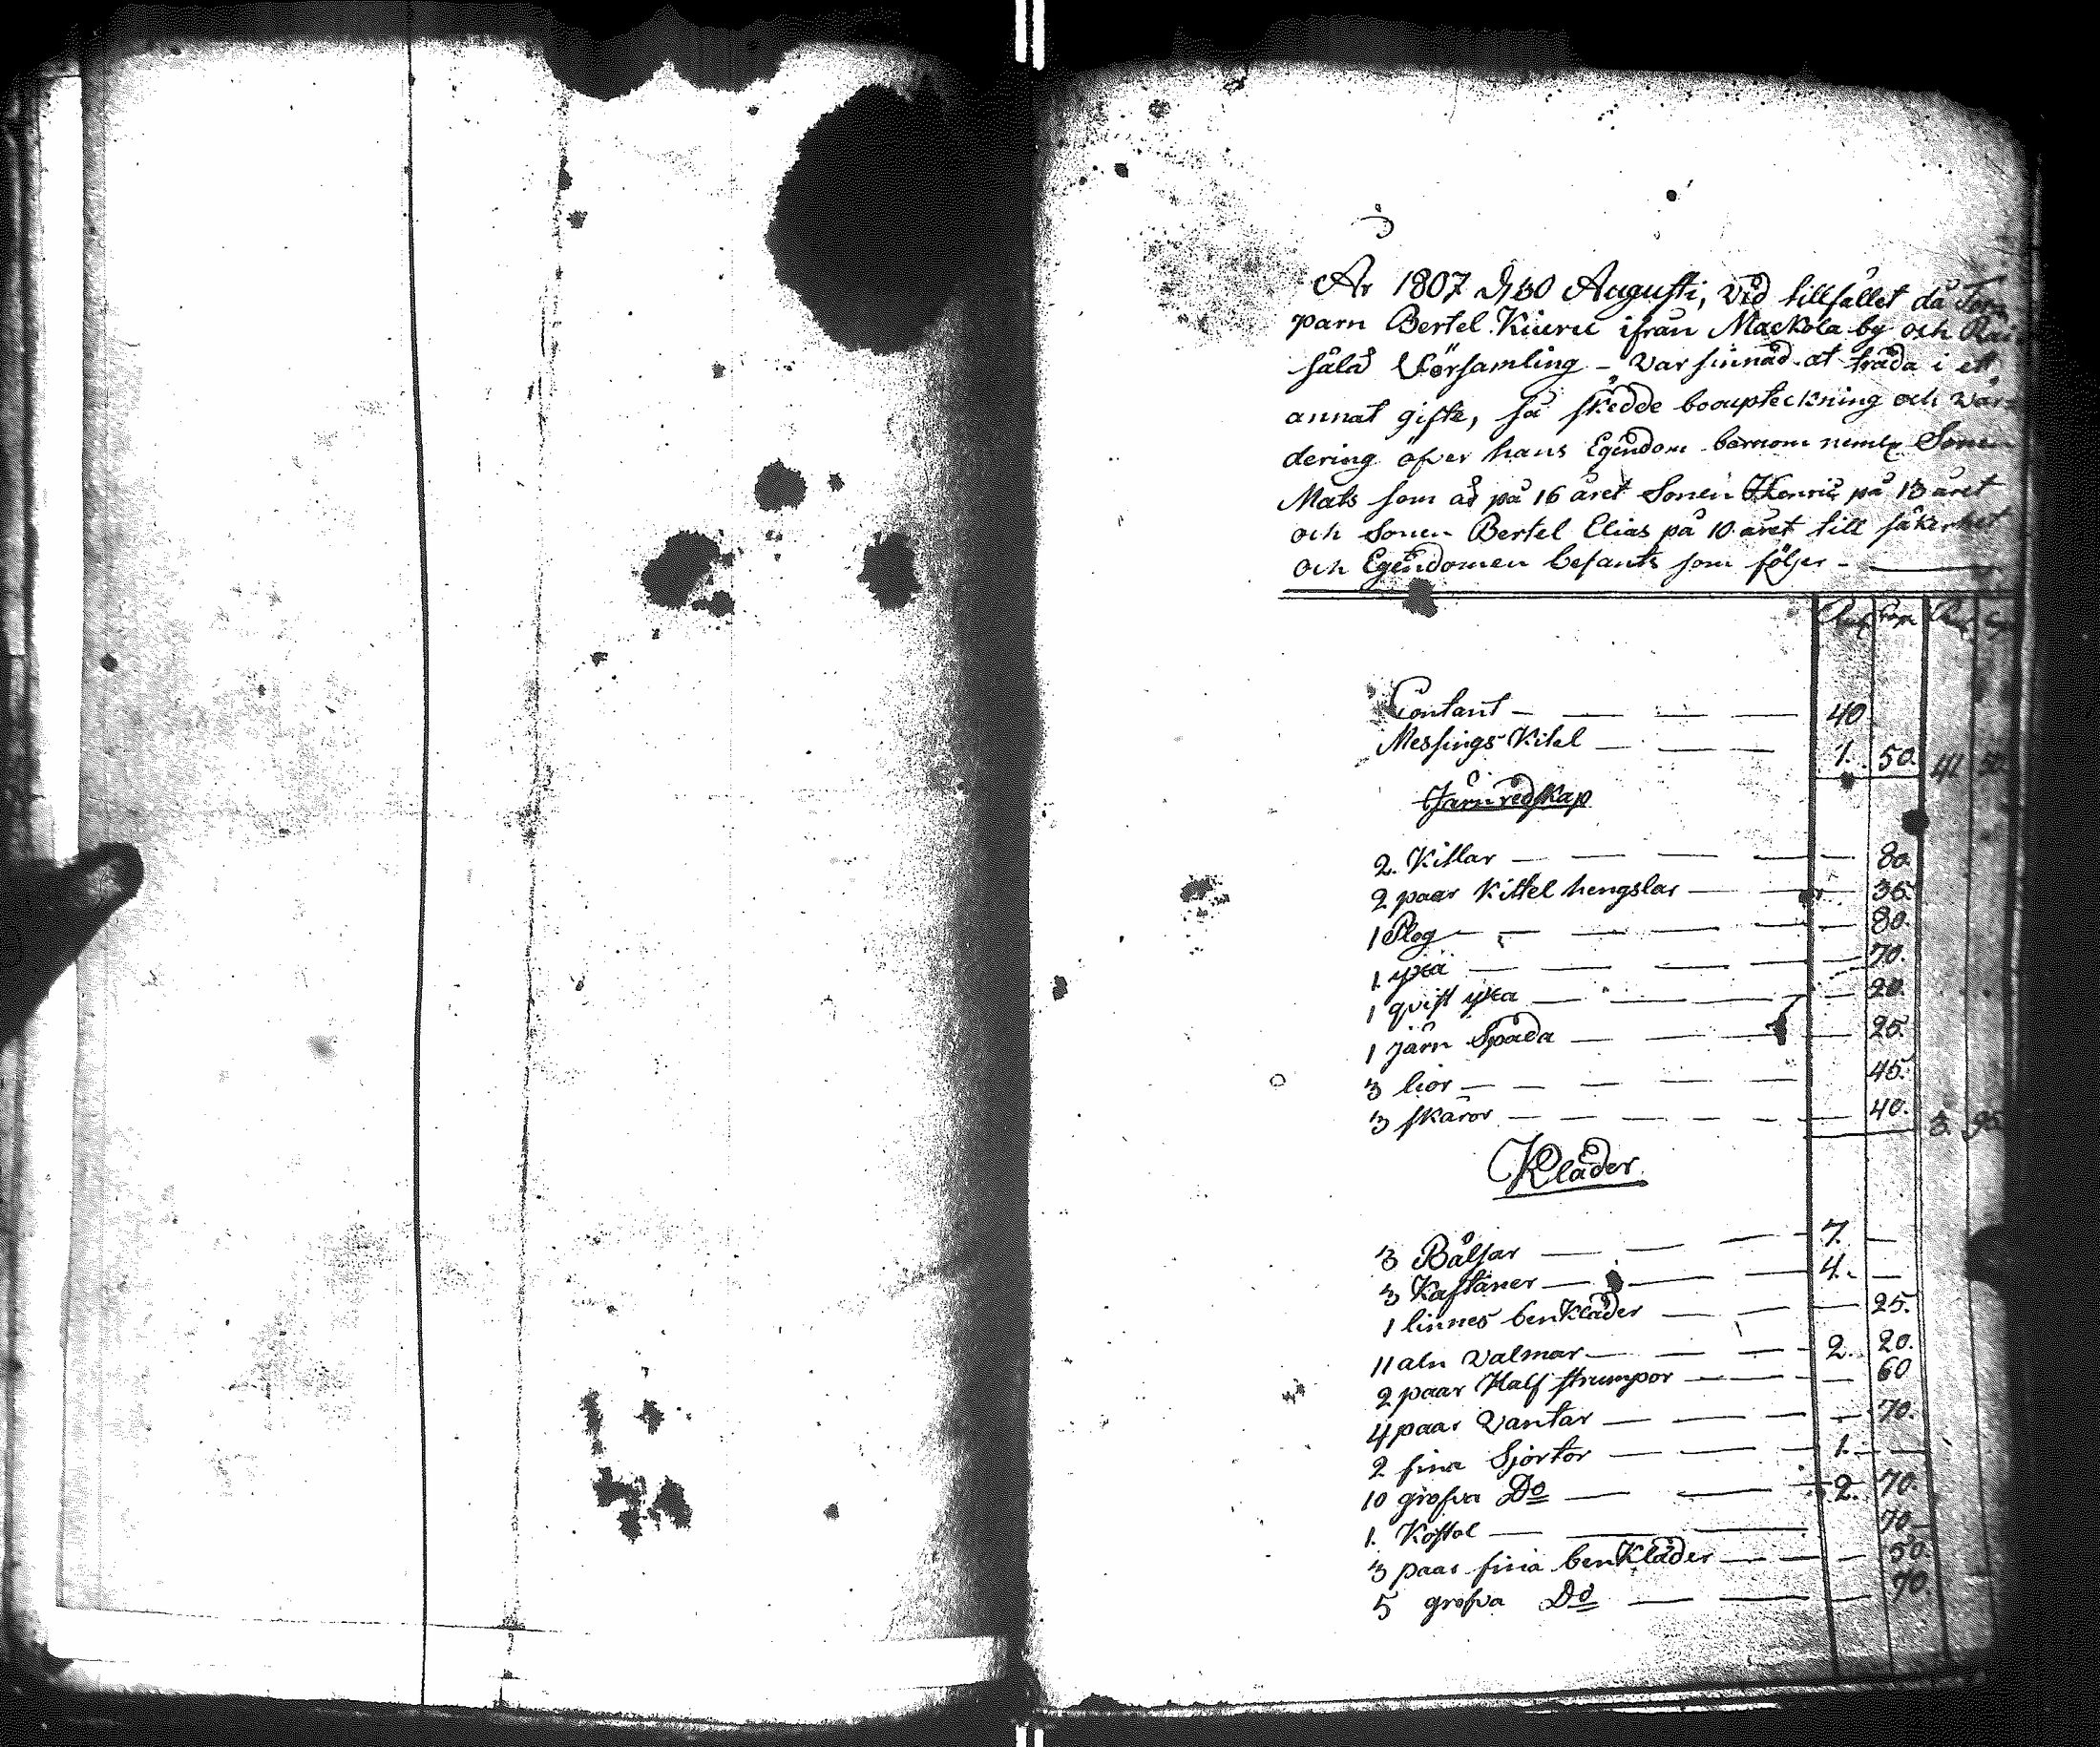 År 1807 d 30 Augusti, vid tillfället då Tor
parn Bertel Kiuru ifrån Mackola by och
sålå Församling – var sinnad at träda i ett
annat gifte, så skedde booupteckning och vär=
dering öfver hans Egendom barnom neml. Sonen
Mats som är på 16 året Sonen Henric på 13 året
och Sonen Bertel Elias på 10 året till säkerhet
och Egendomen befants som följer –
Contant – 40
Messings Kitel – 1. 50. 41 50.
Järnredskap
2. Kitlar – 80.
2 paar Kittel hengslar – 35.
1 Plog – 80.
1 yxa – 70.
1 qvist yxa – 20.
1 järn Spada – 25.
3 lior – 45.
3 skäror – 40. 3. 95
Kläder
3 Bälsar – 7. –
3 Kaftaner – 4. –
1 linnes benkläder – 25.
11 aln valmar – 2. 20.
2 paar Half strumpor – 60
4 paar Vantar – 70.
2 fina Sjortor – 1. –
10 grofva Do – 2. 70.
1. Kostol – 70
3 paar fina benkläder – 50.
5 grofva Do – 70.